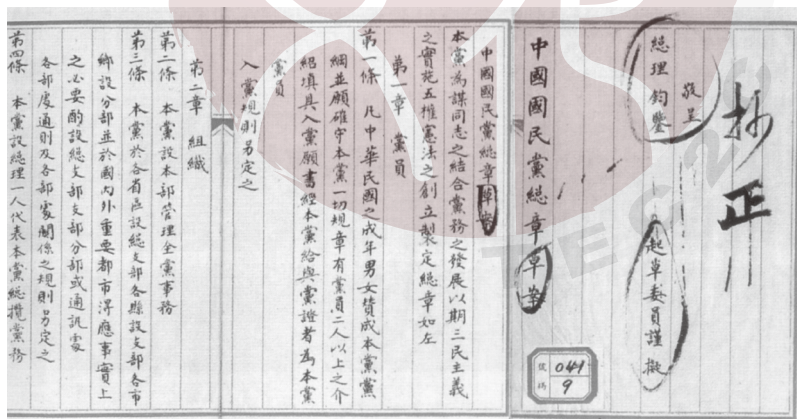 抄正
敬呈
總理鈞鑒
起草委員謹擬
中國國民黨總章草案
041
9
號碼
中國國民黨總章草案
本黨為謀同志之結合黨務之發展以期三民主義
之實施五權憲法之創立製定總章如左
第一章 黨員
第一條 凡中華民國之成年男女贊成本黨黨
綱並願確守本黨一切規章有黨員二人以上之介
紹填具入黨願書經本黨給與黨證者為本黨
黨員
入黨規則另定之
第二章 組織
第二條 本黨設本部管理全黨事務
第三條 本黨於各省區設總支部各縣設支部各市
鄉設分部並於國內外重要都市得應事實上
之必要酌設總支部支部分部或通訊處
各部處通則及各部處關係之規則另定之
第四條 本黨設總理一人代表本黨總攬黨務
TEC